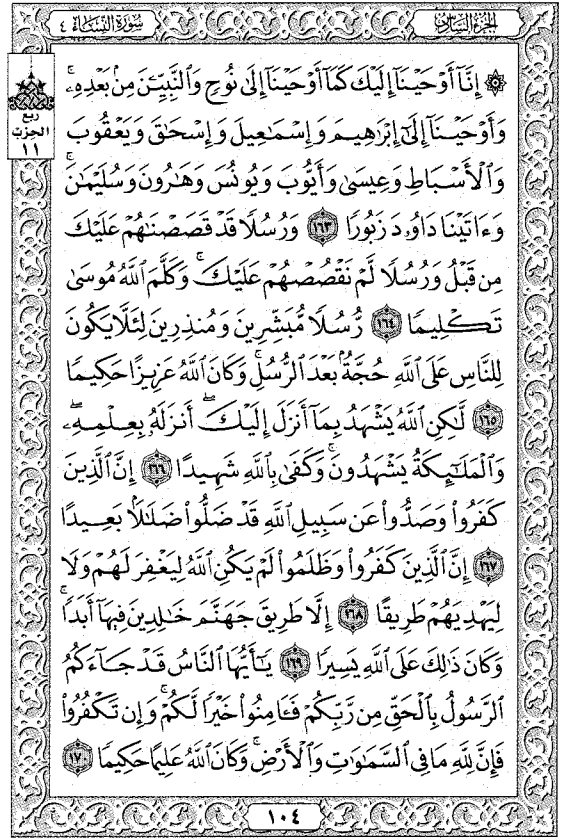 سُورَةُ النِّسَاءِ ٤
الجُزءُ السَّادِسُ
ربع
الحزب
١١
۞ إِنَّآ أَوْحَيْنَآ إِلَيْكَ كَمَآ أَوْحَيْنَآ إِلَىٰ نُوحٍ وَٱلنَّبِيِّـۧنَ مِنۢ بَعْدِهِۦۚ
وَأَوْحَيْنَآ إِلَىٰٓ إِبْرَٰهِيمَ وَإِسْمَـٰعِيلَ وَإِسْحَـٰقَ وَيَعْقُوبَ
وَٱلْأَسْبَاطِ وَعِيسَىٰ وَأَيُّوبَ وَيُونُسَ وَهَـٰرُونَ وَسُلَيْمَـٰنَۚ
وَءَاتَيْنَا دَاوُۥدَ زَبُورًا ١٦٣ وَرُسُلًا قَدْ قَصَصْنَـٰهُمْ عَلَيْكَ
مِن قَبْلُ وَرُسُلًا لَّمْ نَقْصُصْهُمْ عَلَيْكَۚ وَكَلَّمَ ٱللَّهُ مُوسَىٰ
تَكْلِيمًا ١٦٤ رُّسُلًا مُّبَشِّرِينَ وَمُنذِرِينَ لِئَلَّا يَكُونَ
لِلنَّاسِ عَلَى ٱللَّهِ حُجَّةٌۢ بَعْدَ ٱلرُّسُلِۚ وَكَانَ ٱللَّهُ عَزِيزًا حَكِيمًا
١٦٥ لَّـٰكِنِ ٱللَّهُ يَشْهَدُ بِمَآ أَنزَلَ إِلَيْكَۖ أَنزَلَهُۥ بِعِلْمِهِۦۖ
وَٱلْمَلَـٰٓئِكَةُ يَشْهَدُونَۚ وَكَفَىٰ بِٱللَّهِ شَهِيدًا ١٦٦ إِنَّ ٱلَّذِينَ
كَفَرُوا۟ وَصَدُّوا۟ عَن سَبِيلِ ٱللَّهِ قَدْ ضَلُّوا۟ ضَلَـٰلًۢا بَعِيدًا
١٦٧ إِنَّ ٱلَّذِينَ كَفَرُوا۟ وَظَلَمُوا۟ لَمْ يَكُنِ ٱللَّهُ لِيَغْفِرَ لَهُمْ وَلَا
لِيَهْدِيَهُمْ طَرِيقًا ١٦٨ إِلَّا طَرِيقَ جَهَنَّمَ خَـٰلِدِينَ فِيهَآ أَبَدًاۚ
وَكَانَ ذَٰلِكَ عَلَى ٱللَّهِ يَسِيرًا ١٦٩ يَـٰٓأَيُّهَا ٱلنَّاسُ قَدْ جَآءَكُمُ
ٱلرَّسُولُ بِٱلْحَقِّ مِن رَّبِّكُمْ فَـَٔامِنُوا۟ خَيْرًا لَّكُمْۚ وَإِن تَكْفُرُوا۟
فَإِنَّ لِلَّهِ مَا فِى ٱلسَّمَـٰوَٰتِ وَٱلْأَرْضِۚ وَكَانَ ٱللَّهُ عَلِيمًا حَكِيمًا ١٧٠
١٠٤